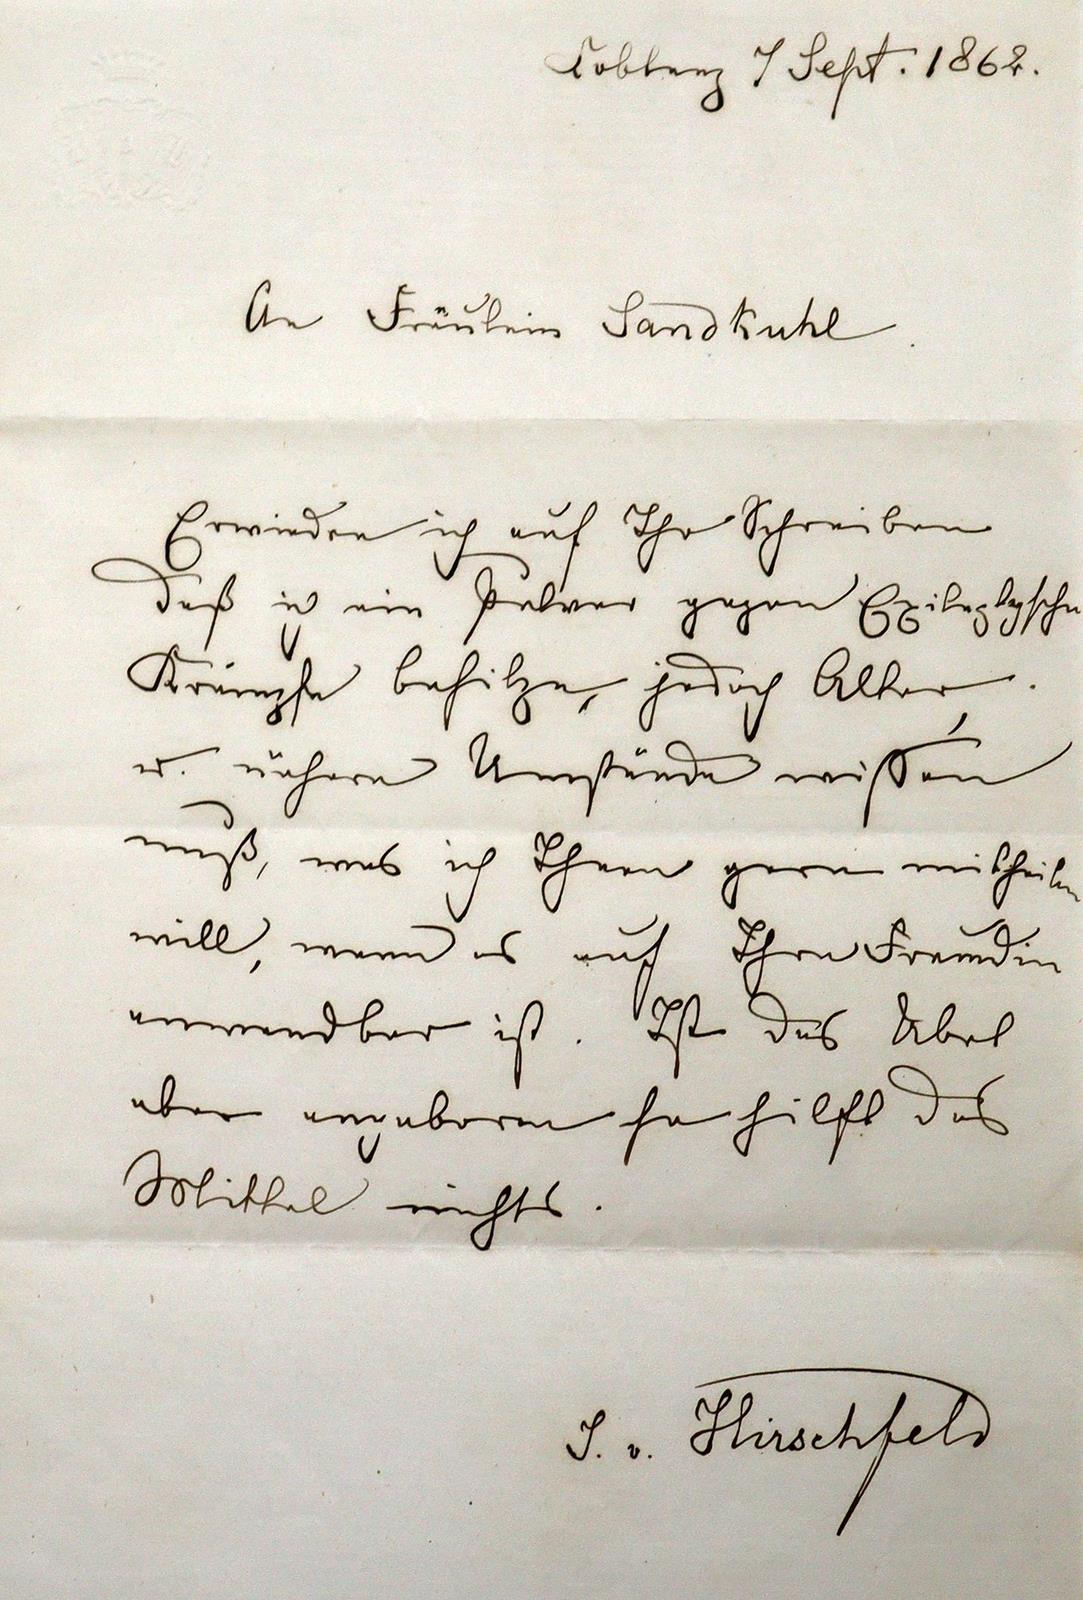 Coblenz 7 Sept. 1862.
An Fräulein Sandkuhl.
Erwiedre ich auf Ihr Schreiben
daß ich ein Pulver gegen Epileptysche
Krämpfe besitze, jedoch Alter,
u. nähere Umstände wissen
muß, was ich Ihnen gern mittheilen
will, wenn es auf Ihre Freundin
anwendbar ist. Ist das Übel
aber angeboren so hilft das
Mittel nichts.
J. v. Hirschfeld